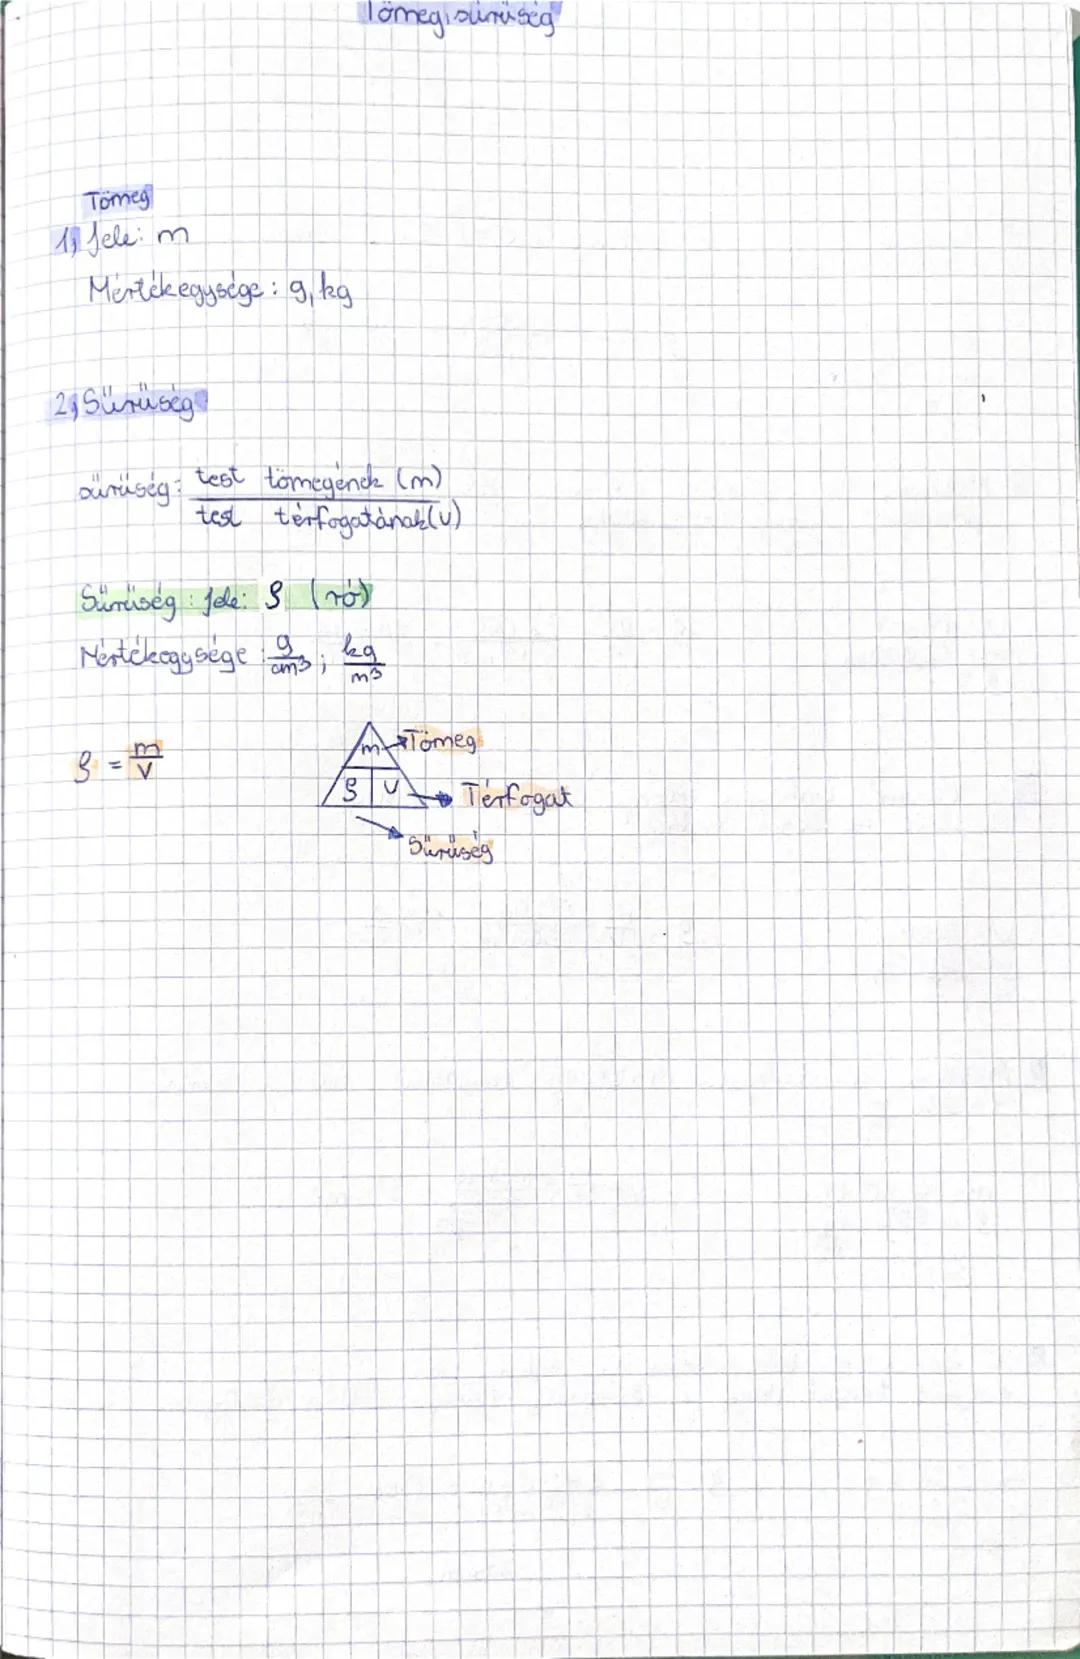 Tömeg, sűrűség
Tömeg
1, Jele: m
Mértékegysége: g, kg
2, Sűrűség
sűrűség: test tömegének (m)
test térfogatának (V)
Sűrűség: jele: ρ (ró)
Mértékegysége: g/cm³ ; kg/m³
ρ = m/V
m → Tömeg
ρ | V → Térfogat
→ Sűrűség